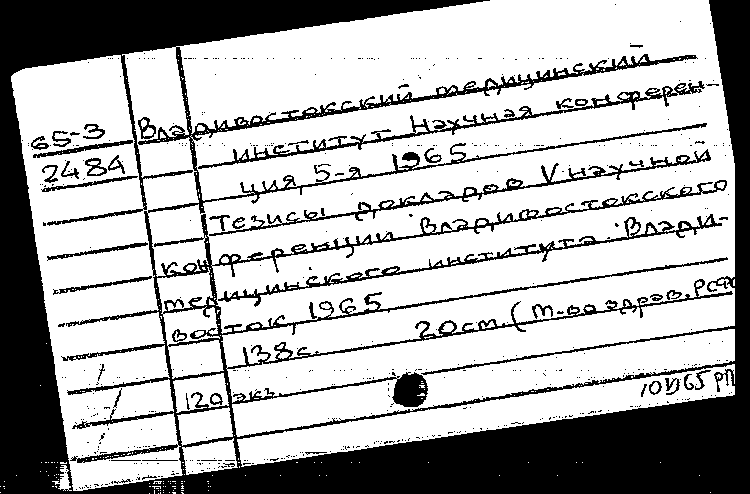 65-3 Владивостокский медицинский
2484 институт Научная конферен-
ция, 5-я. 1965.
Тезисы докладов V научной
конференции Владивостокского
медицинского института. Влади-
восток, 1965
138 с. 20 см. (М-во здрав. РСФС
120 экз.